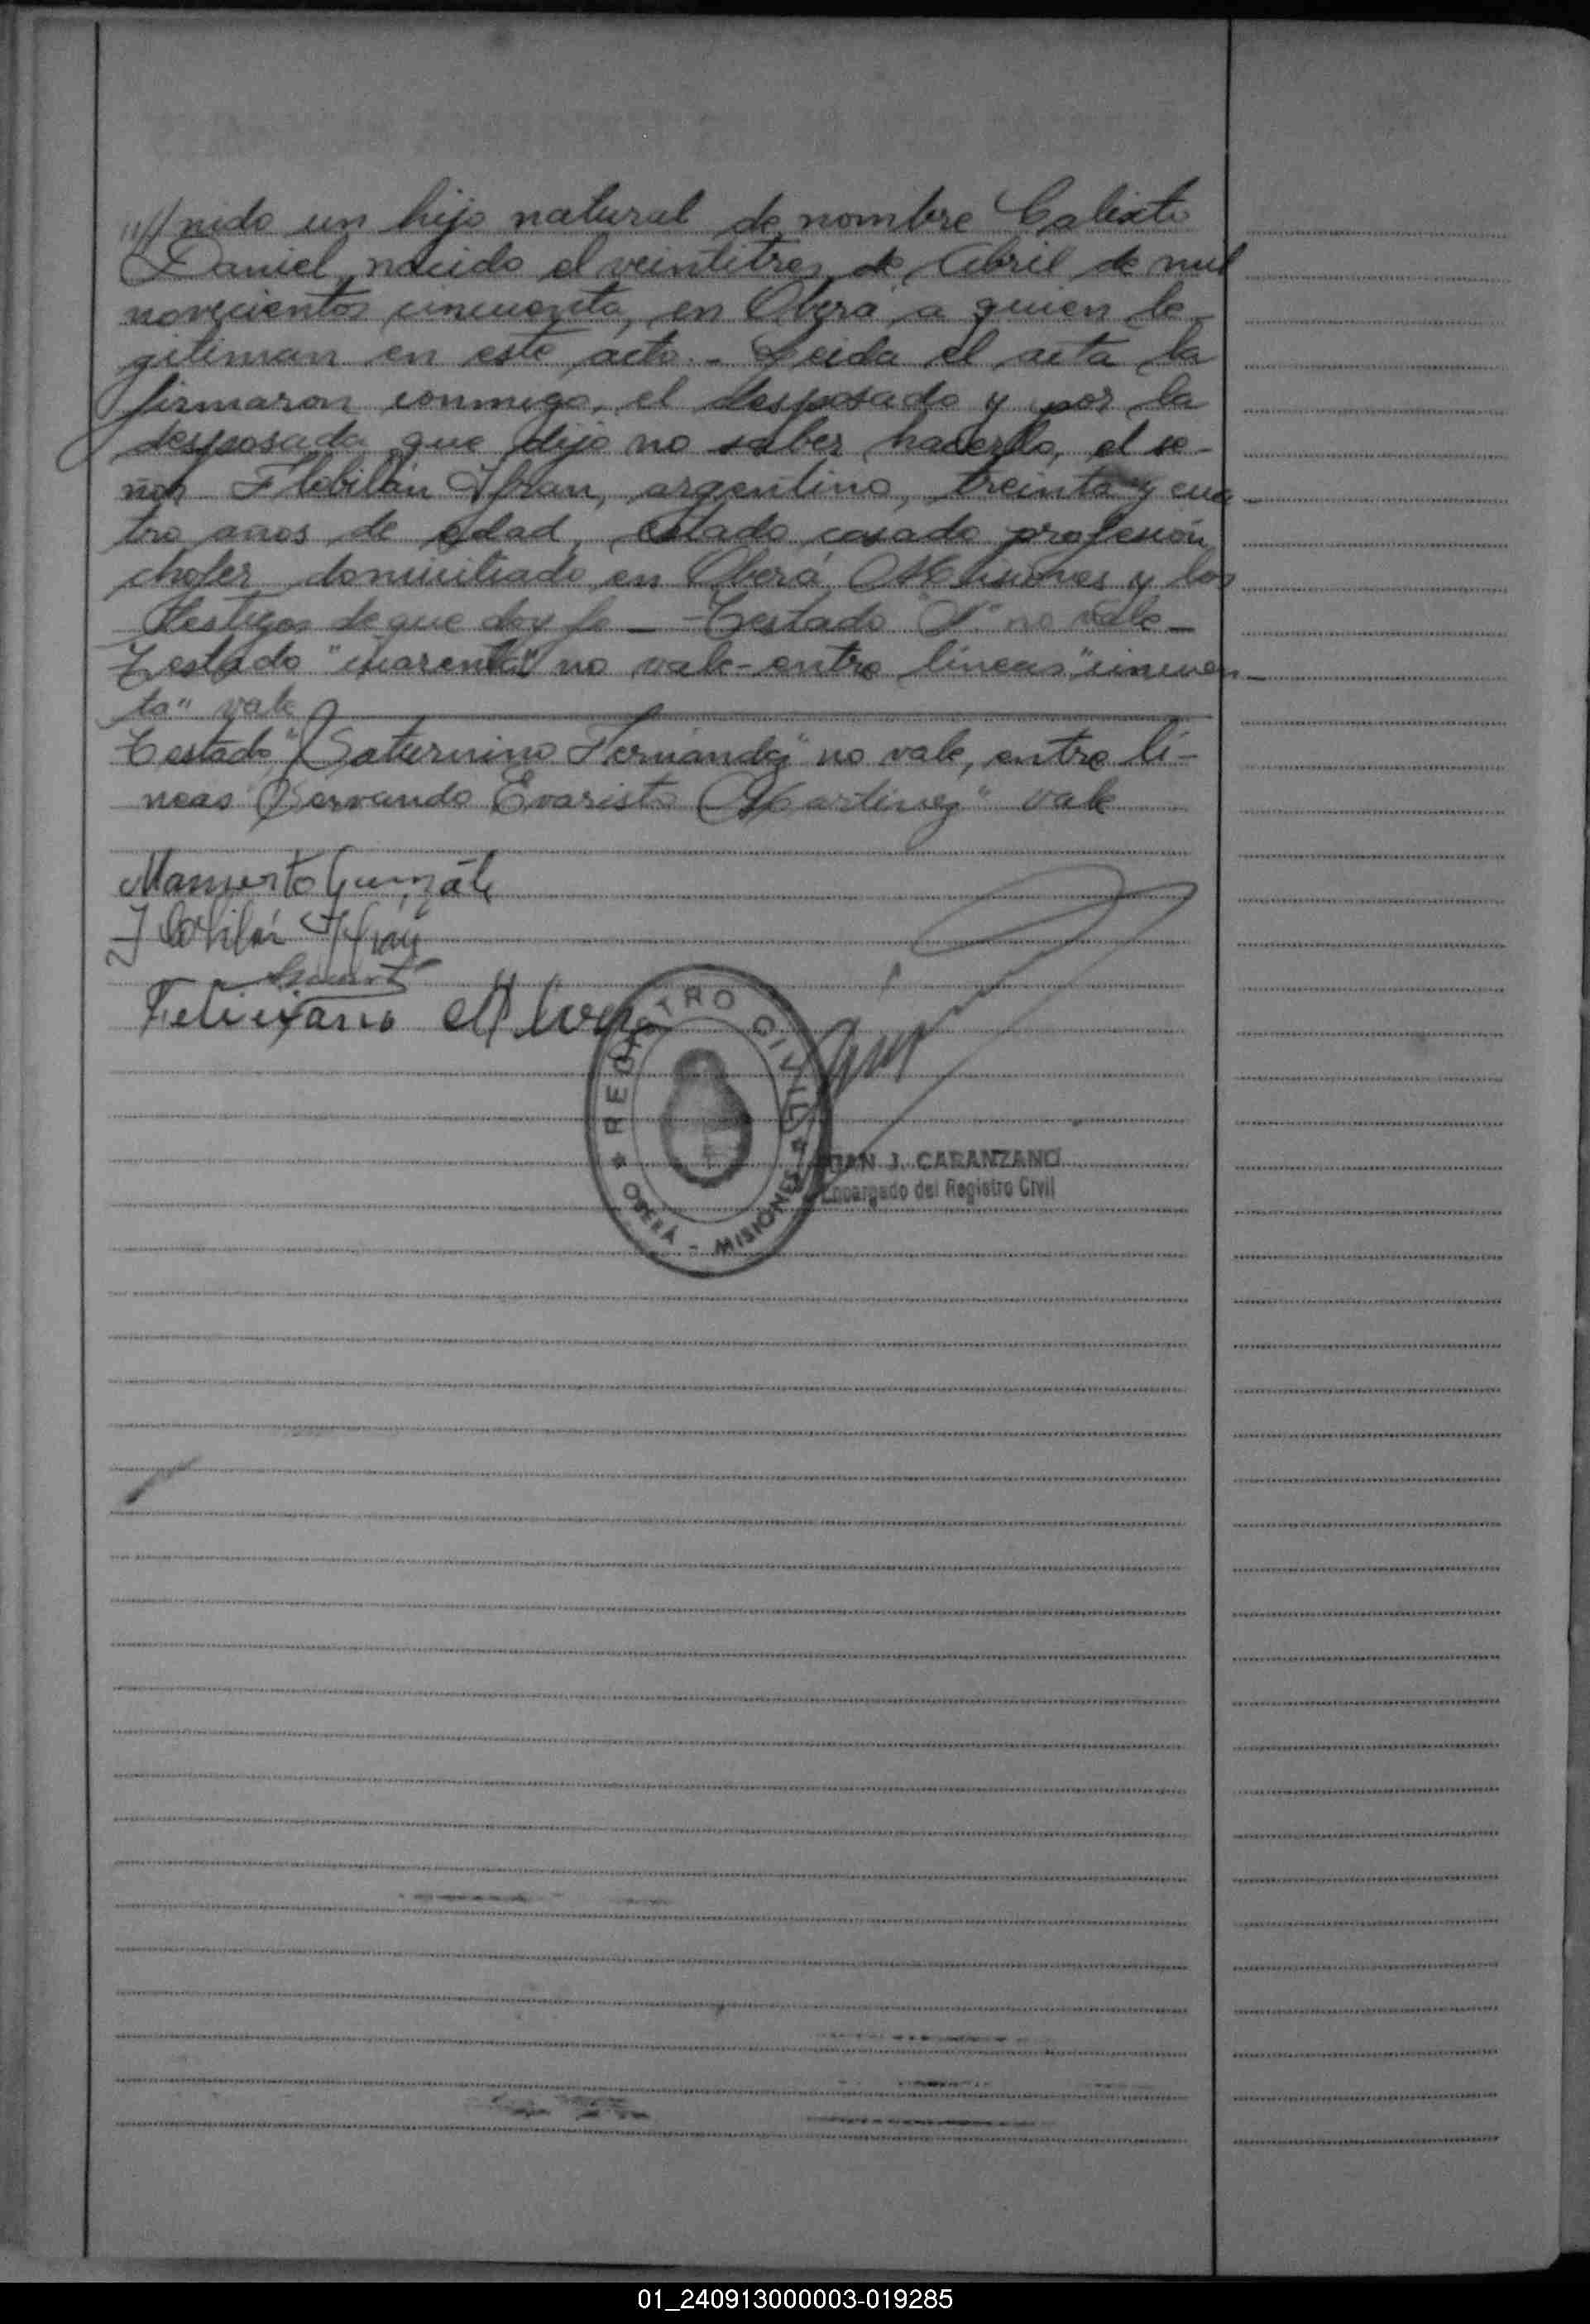 ////nido un hijo natural de nombre Calixto
Daniel, nacido el veintitres de Abril de mil
novecientos cincuenta, en Oberá a quien le-
gitiman en este acto.- Leida el acta la
firmaron conmigo, el desposado y por la
desposada que dijo no saber hacerlo, el se-
ñor Flobilán Ifran, argentino, treinta y cua-
tro años de edad, estado casado profesión
chofer domiciliado en Oberá Misiones y los
testigos de que doy fe - Testado no vale-
Testado "cuarenta" no vale-entre líneas "cincuen-
ta" vale
Testado "Saturnino Fernandez" no vale, entre lí-
neas "Servando Evaristo Martinez" vale
Mamerto
Flobilán Ifran
Feliciano
REGISTRO CIVIL
OBERÁ - MISIONES
JUAN J. CARANZANO
Encargado del Registro Civil
01_240913000003-019285